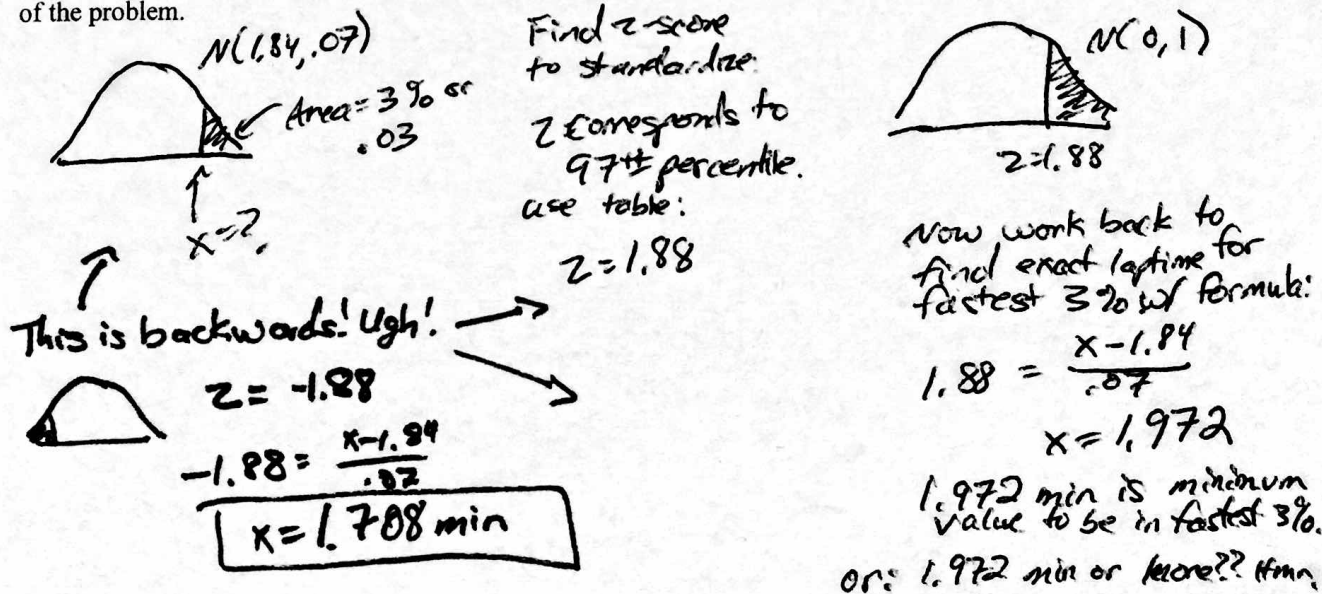 of the problem.
N(1.84, .07)
Area = 3% or
.03
x=?
This is backwards! Ugh!
z = -1.88
-1.88 = x-1.84
.07
x = 1.708 min
Find z-score
to standardize.
z corresponds to
97th percentile.
use table:
z=1.88
N(0,1)
z=1.88
Now work back to
find exact laptime for
fastest 3% w/ formula:
1.88 = x-1.84
.07
x = 1.972
1.972 min is minimum
value to be in fastest 3%.
or: 1.972 min or more?? Hmm.